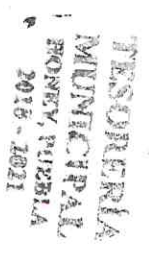 TESORERÍA
MUNICIPAL
HONEY, PUEBLA
2018 - 2021